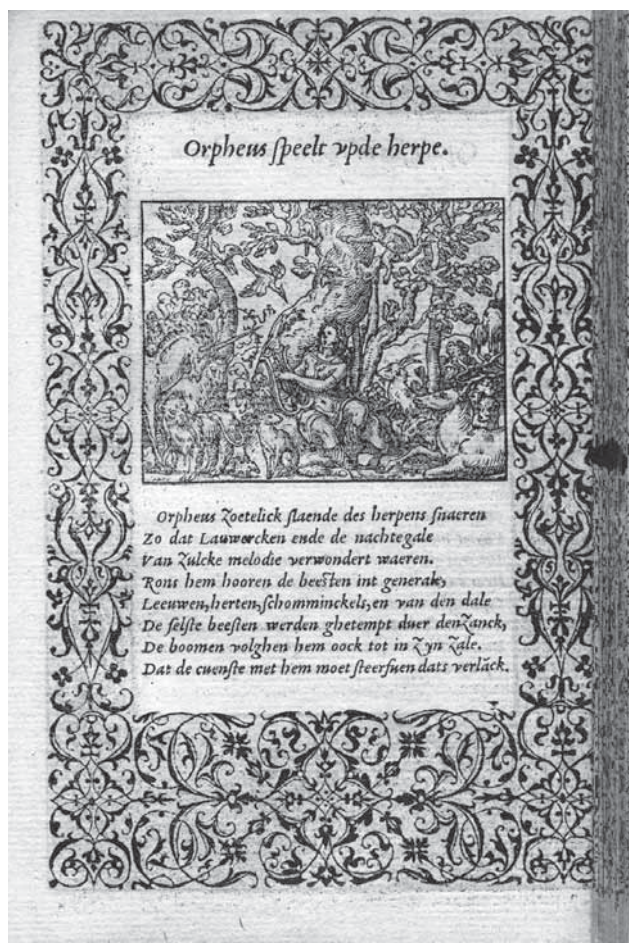 Orpheus ſpeelt vpde herpe.
Orpheus Zoetelick ſlaende des herpens ſnaeren
Zo dat Lauwercken ende de nachtegale
Van Zulcke melodie verwondert waeren.
Rons hem hooren de beeſten int generale,
Leeuwen, herten, ſchomminckels, en van den dale
De felſte beeſten werden ghetempt duer den Zanck,
De boomen volghen hem oock tot in Zyn Zale.
Dat de cuenſte met hem moet ſteerfuen dats verlāck.